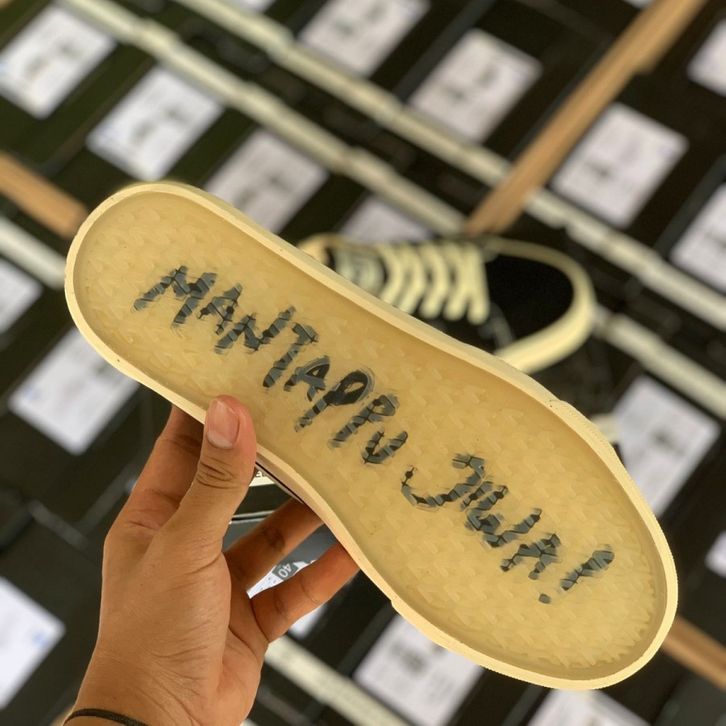 MANTAPPU JIWA!
40